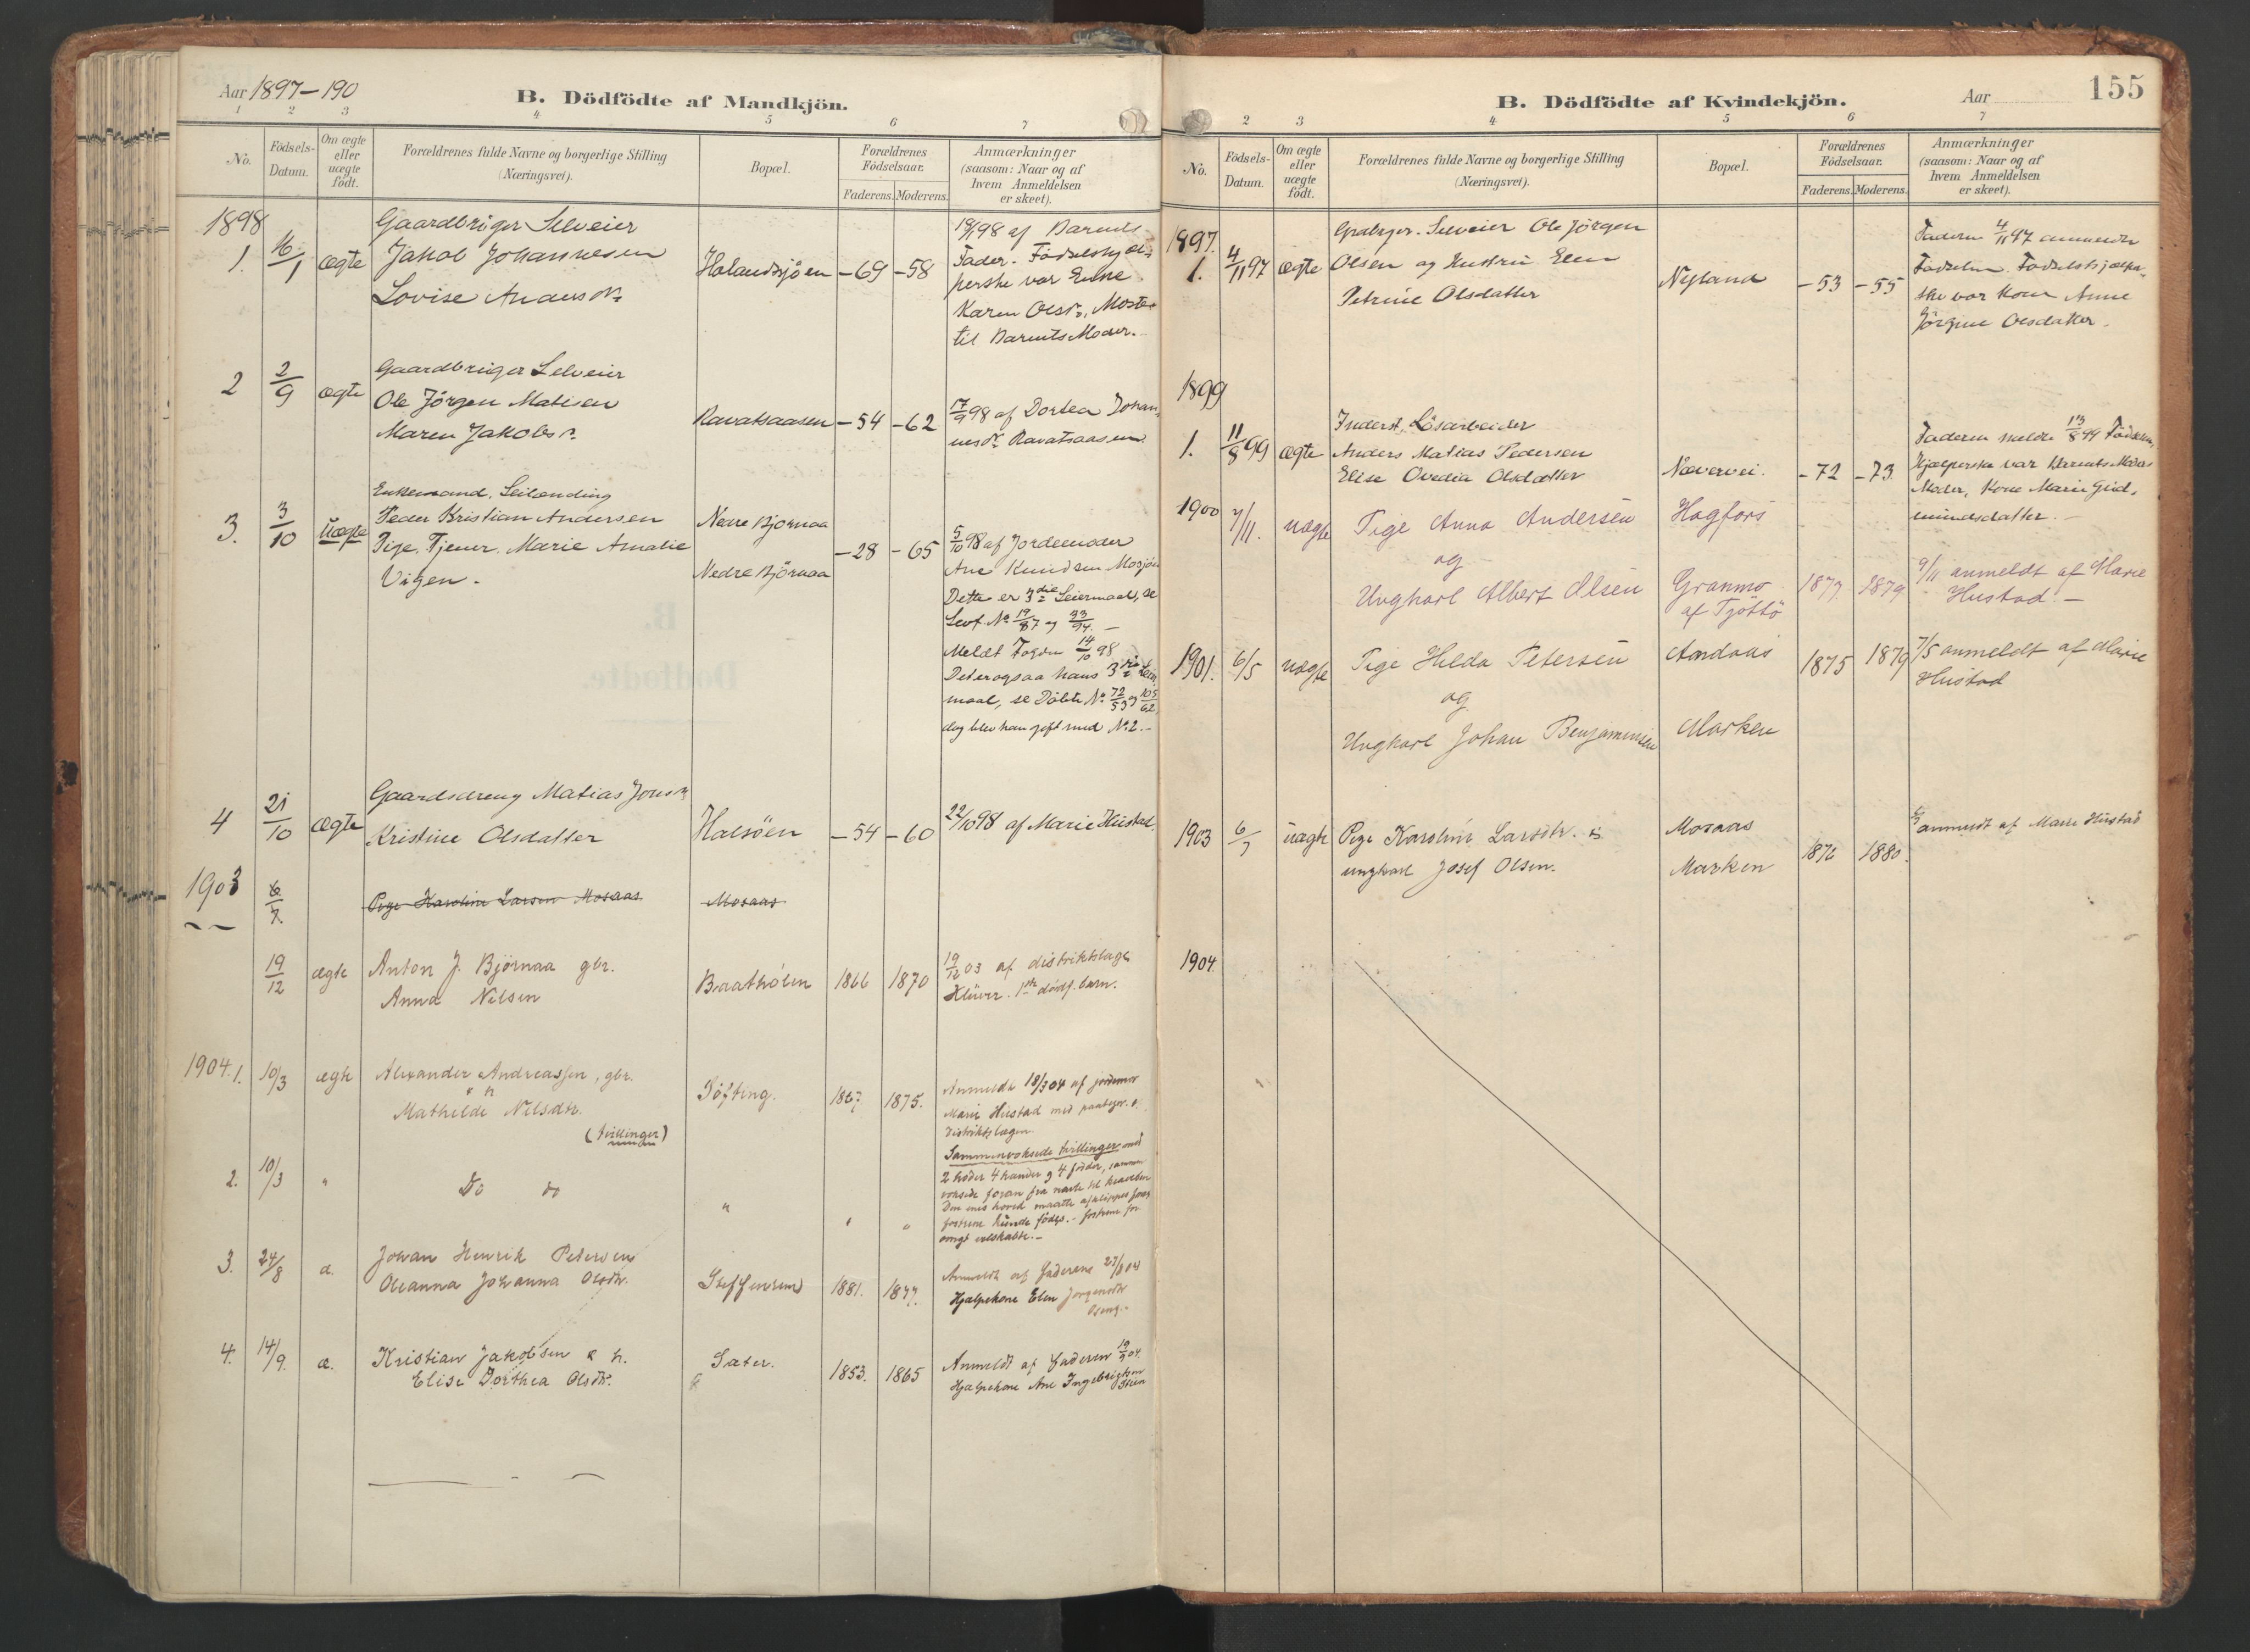 Aar 1897-190
B. Dödfödte af Mandkjön.
1 2 3 4 5 6 7
No.
Födsels-Datum.
Om ægte eller uægte födt.
Forældrenes fulde Navne og borgerlige Stilling (Næringsvei).
Bopæl.
Forældrenes Födselsaar.
Faderens. Moderens.
Anmærkninger (saasom: Naar og af hvem Anmeldelsen er skeet).
1898
1. 16/1 ægte
Gaardbruger Selveier
Jakob Johannesen
Lovise Andersdr.
Halandsjöen -69 -58
19/1 98 af Barnets
Fader. Födselshjæl-
perske var Enke
Karen Olsdr., Moster
til Barnets Moder.
2 2/9 ægte
Gaardbruger Selveier
Ole Jörgen Matisen
Maren Jakobsdr.
Ravatsaasen -54 -62
17/9 98 af Dortea Johan-
nesdr. Ravatsaasen
3. 3/10 Uægte
Enkemand, Leilending
Peder Kristian Andersen
Pige, Tjener, Marie Amalie
Vigen.
Nedre Bjornaa
Nedre Björnaa
-28 -65
5/10 98 af Jordemoder
Ane Knudsen Mosjöen
Dette er 3die Leiermaal, se
Levf. No 19/87 og 33/94. -
Meldt Fogden 14/10 98
Det er ogsaa hans 3die Leier-
maal, se Döbte No 72/59 og 105/62,
dog blev han gift med No 2. -
4 21/10 ægte
Gaardsdreng Matias Jonsen
Kristine Olsdatter
Halsöen -54 -60
22/10 98 af Marie Hustad.
1903 6/7.
Pige Karoline Larsen Mosaas
Mosaas
19/12 ægte
Anton J. Björnaa gbr.
Anna Nilsen
Baatholen 1866 1870
19/12 03 af distriktslæge
Klüver. 1ste dödf. barn.
1904. 1. 10/3 ægte
Alexander Andreassen, gbr.
& h.
Mathilde Nilsdtr.
(tvillinger)
Söfting. 1867. 1875.
Anmeldt 18/3 04 af jordemor
Marie Hustad med paategn. f.
distriktslægen.
Sammenvoksede tvillinger med
2 hoder 4 hænder og 4 födder, sammen
voksede foran fra navle til
Den enes hoved maatte afklippes forat
fostrene kunde födes. - fostrene for
övrigt velskabte. -
2. 10/3 "
Do do
" " "
3. 24/8 æ.
Johan Henrik Petersen
Oleanna Johanna Olsdtr.
1881. 1877.
Anmeldt af Faderen 27/8 04
Hjælpekone Elen Jörgensdtr
4. 14/9. æ.
Kristian Jakobsen & h.
Elise Dorthea Olsdtr.
Sæter. 1853. 1865
Anmeldt af Faderen 19/9 04.
Hjælpekone Ane Ingebrigtsen
155
B. Dödfödte af Kvindekjön.
Aar
2 3 4 5 6 7
No.
Födsels-Datum.
Om ægte eller uægte födt.
Forældrenes fulde Navne og borgerlige Stilling (Næringsvei).
Bopæl.
Forældrenes Födselsaar.
Faderens. Moderens.
Anmærkninger (saasom: Naar og af hvem Anmeldelsen er skeet).
1897.
1. 4/11 97 ægte
Grdbrger. Selveier Ole Jörgen
Olsen og Hustru Elen
Petrine Olsdatter
Nyland -53 -55
Faderen 4/11 97 anmeldte
Födselen. Födselshjælper-
ske var Kone Anne
Jörgine Olsdatter.
1899
1. 11/8 99 ægte
Inderst, Lösarbeider
Anders Matias Pedersen
Elise Ovedia Olsdatter
Nævervei. -72 -73.
Faderen meldte 13/8 99 Födselen,
Hjælperske var Barnets Moders
Moder, Kone Marie Gud-
mundsdatter. -
1900 7/11. uægte
Pige Anna Andersen
og
Ungkarl Albert Olsen
Hagfors
Granmo
af Tjöttö
1877. 1879
9/11 anmeldt af Marie
Hustad. -
1901. 6/5 uægte
Pige Hilda Petersen
og
Ungkarl Johan Benjaminsen
Andaas
Marken
1875 1879
7/5 anmeldt af Marie
Hustad
1903 6/7 uægte
Pige Karoline Larsdtr. &
ungkarl Josef Olsen.
Mosaas
Marken
1876 1880.
anmeldt af Marie Hustad
1904.